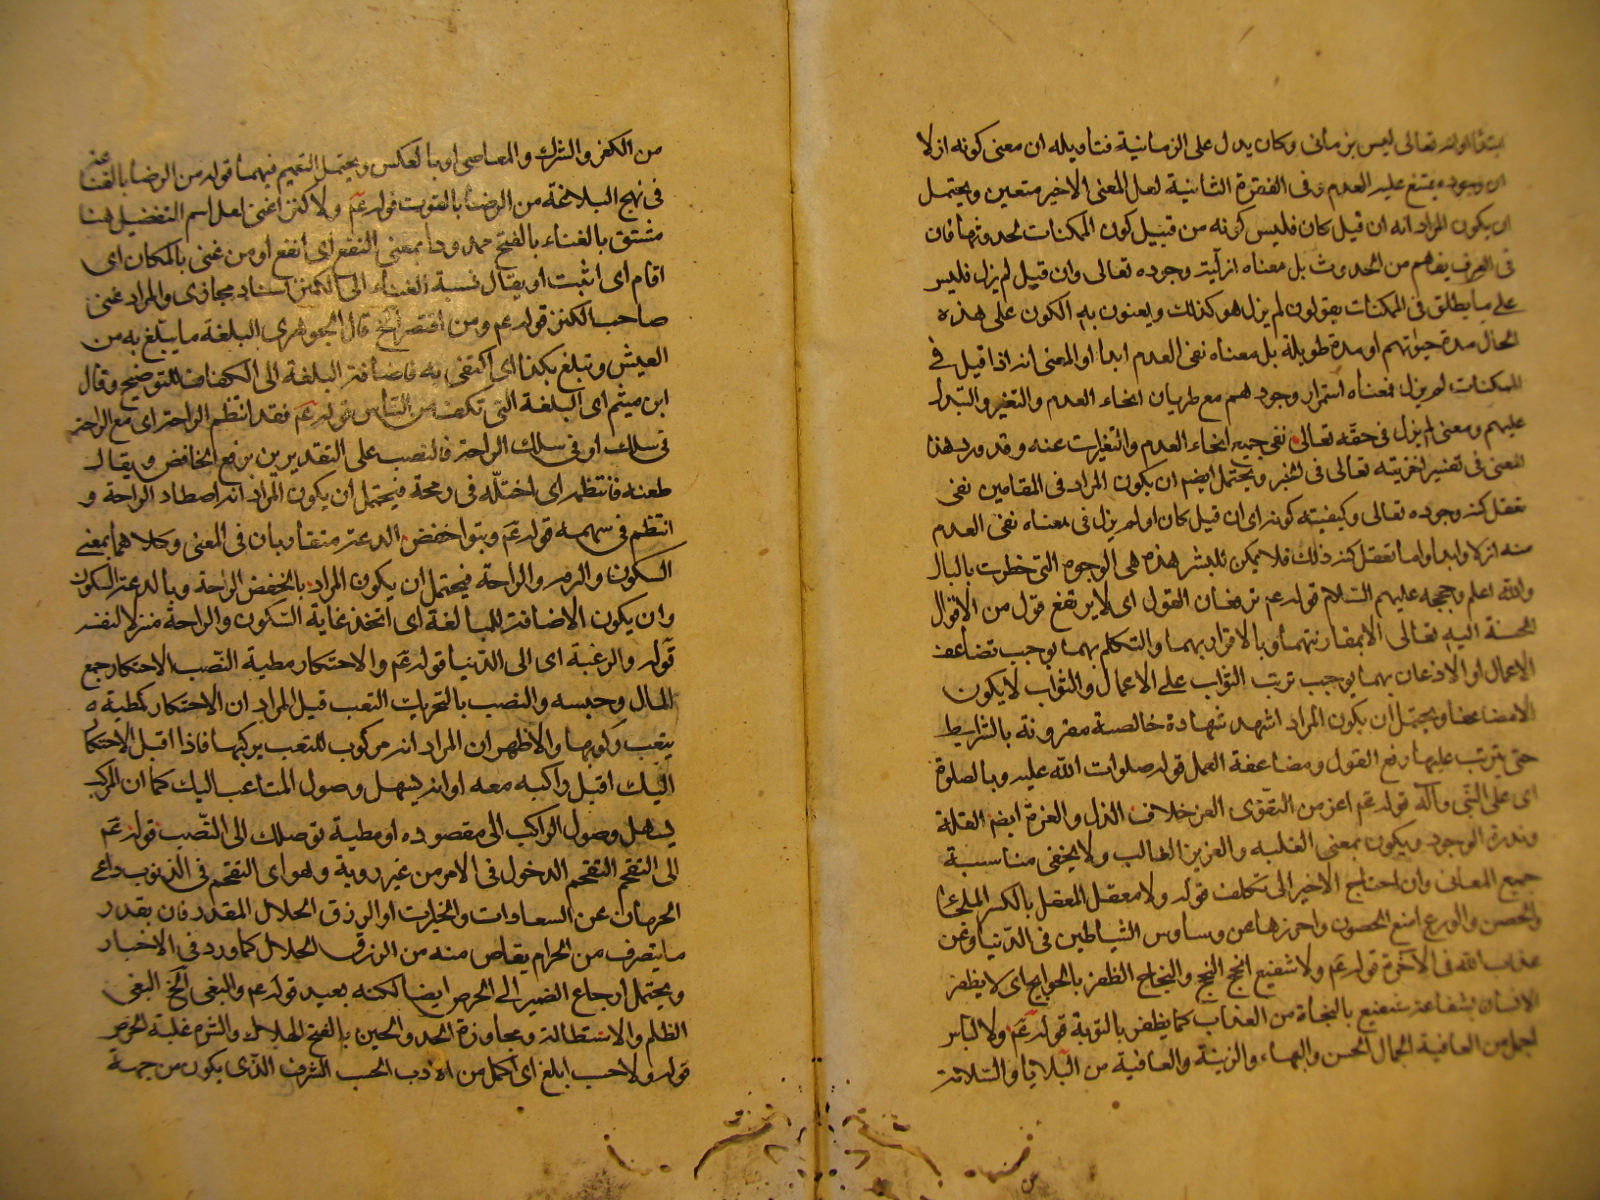 تعالى ليس بزماني وكان يدل على الزمانية فتأويله ان معنى كونه ازلا
ان وجوده يمتنع عليه العدم وفي الفقرة الثانية لعل المعنى الاخير متعين ويحتمل
ان يكون المراد انه ان قيل كان فليس كونه من قبيل كون الممكنات لحدوثها فان
في العرف يفهم من الحدوث بل معناه ازليته وجوده تعالى وان قيل لم يزل فليس
على ما يطلق في الممكنات يقولون لم يزل هو كذلك ويعنون به الكون على هذه
الحال مدة حيوتهم او مدة طويلة بل معناه نفى العدم ابدا او المعنى انه اذا قيل في
الممكنات لم يزل فمعناه استمرار وجودهم مع طريان انحاء العدم والتغير والتبدل
عليهم ومعنى لم يزل في حقه تعالى نفى جميع انحاء العدم والتغيرات عنه وقد ورد هذا
المعنى في تفسير اخريته تعالى في الخبر ويحتمل ايضا ان يكون المراد في المقامين نفى
تعقل كنه وجوده تعالى وكيفية كونه اى ان قيل كان او لم يزل في معناه نفى العدم
عنه ازلا وابدا واما تعقل كنه ذلك فلا يمكن للبشر هذه هي الوجوه التى خطرت بالبال
والله اعلم وحججه عليهم السلام قوله عم ترفعان القول اى لا يرتفع قول من الاقوال
الحسنة اليه تعالى الا بمقارنتهما وبالاقرار بهما والتكلم بهما يوجب تضاعف
الاعمال او الاذعان بهما يوجب ترتب الثواب على الاعمال والثواب لا يكون
الا مضاعفا ويحتمل ان يكون المراد اشهد شهادة خالصة مقرونة بالشرايط
حتى يترتب عليها رفع القول ومضاعفة العمل قوله صلوات الله عليه وبالصلوة
اى على النبى وآله قوله عم اعز من التقوى العز خلاف الذل والعزة ايضم القلة
وندرة الوجود ويكون بمعنى الغلبه والعزيز الغالب ولا يخفى مناسبة
جميع المعانى وان احتاج الاخير الى تكلف قوله ولا معقل المعقل بالكسر الملجأ
والحصن والورع امنع الحصون واحرزها عن وساوس الشياطين في الدنيا وعن
عذاب الله في الآخرة قوله عم ولا شفيع انجح النجح والنجاح الظفر بالحوايج اى لا يظفر
الانسان بشفاعة شفيع بالنجاة من العذاب كما يظفر بالتوبة قوله عم ولا لباس
اجمل من العافية الجمال الحسن والبهاء والزينة والعافية من البلايا والسلامة
من الكفر والشرك والمعاصى او بالعكس ويحتمل التعميم فيهما قوله من الرضا بالقنا عنه
في نهج البلاغة من الرضا بالقوت قوله عم ولا كنز اغنى لعل اسم التفضيل هنا
مشتق بالغناء بالفتح ممدودا بمعنى النفع اى انفع او من غنى بالمكان اى
اقام اى اثبت او يقال نسبة الغناء الى الكنز اسناد مجازى والمراد غنى
صاحب الكنز قوله عم ومن اقتصر الخ قال الجوهرى البلغة ما يتبلغ به من
العيش وتبلغ بكذا اى اكتفى به فاضافة البلغة الى الكفاف للتوضيح وقال
ابن ميثم اى البلغة التى تكفه من الناس قوله عم فقد انتظم الراحة اى مع الراحة
في سلك او في سلك الراحة فالنصب على التقديرين بنزع الخافض ويقال
طعنه فانتظمه اى اختله في رمحه فيحتمل ان يكون المراد انه اصطاد الراحة و
انتظم في سهمه قوله عم وتبوا خفض الدعة متقاربان في المعنى وكلاهما بمعنى
السكون والراحة فيحتمل ان يكون المراد بالخفض الراحة وبالدعة السكون
وان يكون الاضافة للمبالغة اى اتخذ غاية السكون والراحة منزلا لنفسه
قوله والرغبة اى الى الدنيا قوله عم والاحتكار مطية النصب الاحتكار جمع
المال وحبسه والنصب بالتحريك التعب قيل المراد ان الاحتكار كمطية
يتعب ركوبها والاظهر ان المراد انه مركوب للتعب يركبها فاذا اقبل الاحتكا
اليك اقبل راكبه معه او انه يسهل وصول المتاعب اليك كما ان المركب
يسهل وصول الراكب الى مقصوده او مطية توصلك الى النصب قوله عم
الى التقحم التقحم الدخول في الامر من غير روية وهو اى التقحم في الذنوب داعى
الحرمان عن السعادات والخيرات او الرزق الحلال المقدر فان بقدر
ما يتصرف من الحرام يقاص منه من الرزق الحلال كما ورد في الاخبار
ويحتمل ارجاع الضمير الى الحرص ايضا لكنه بعيد قوله عم والبغى الخ البغى
الظلم والاستطالة ومجاوزة الحد والحين بالفتح الهلاك والشره غلبة الحرص
قوله ولا حسب ابلغ اى اكمل من الادب الحسب الشرف الذى يكون من جهة